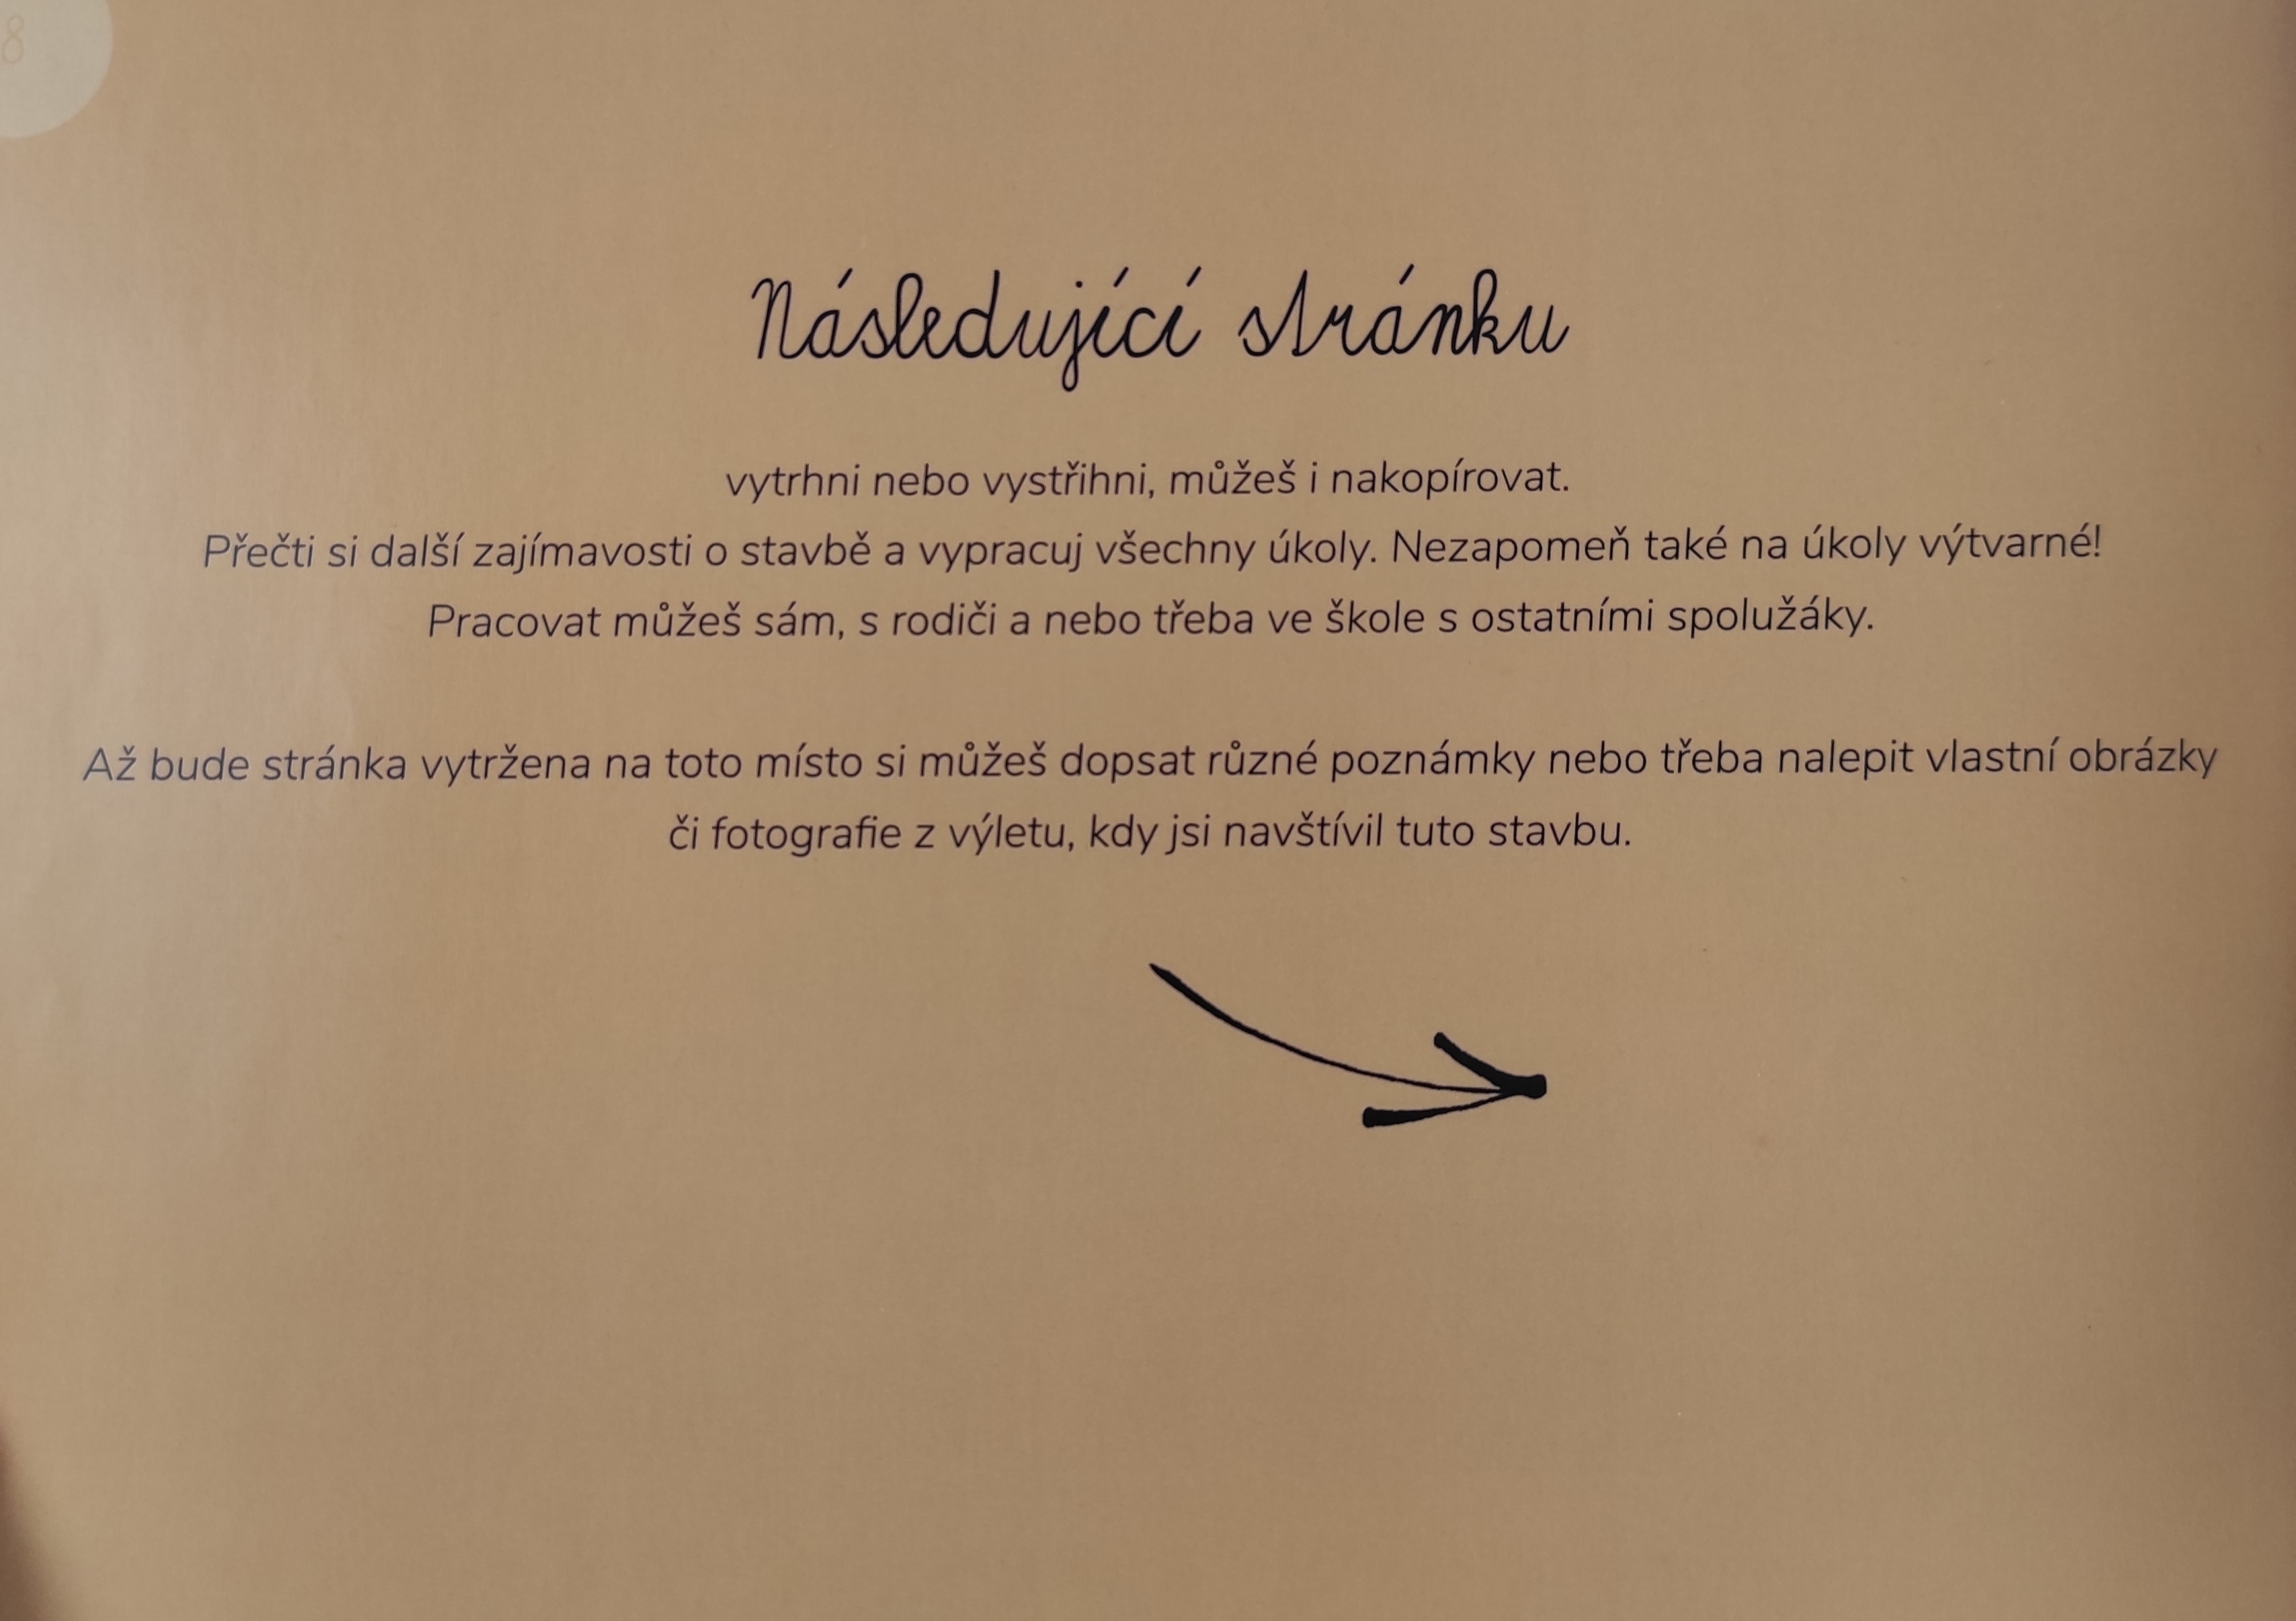 8
Následující stránku
vytrhni nebo vystřihni, můžeš i nakopírovat.
Přečti si další zajímavosti o stavbě a vypracuj všechny úkoly. Nezapomeň také na úkoly výtvarné!
Pracovat můžeš sám, s rodiči a nebo třeba ve škole s ostatními spolužáky.
Až bude stránka vytržena na toto místo si můžeš dopsat různé poznámky nebo třeba nalepit vlastní obrázky
či fotografie z výletu, kdy jsi navštívil tuto stavbu.